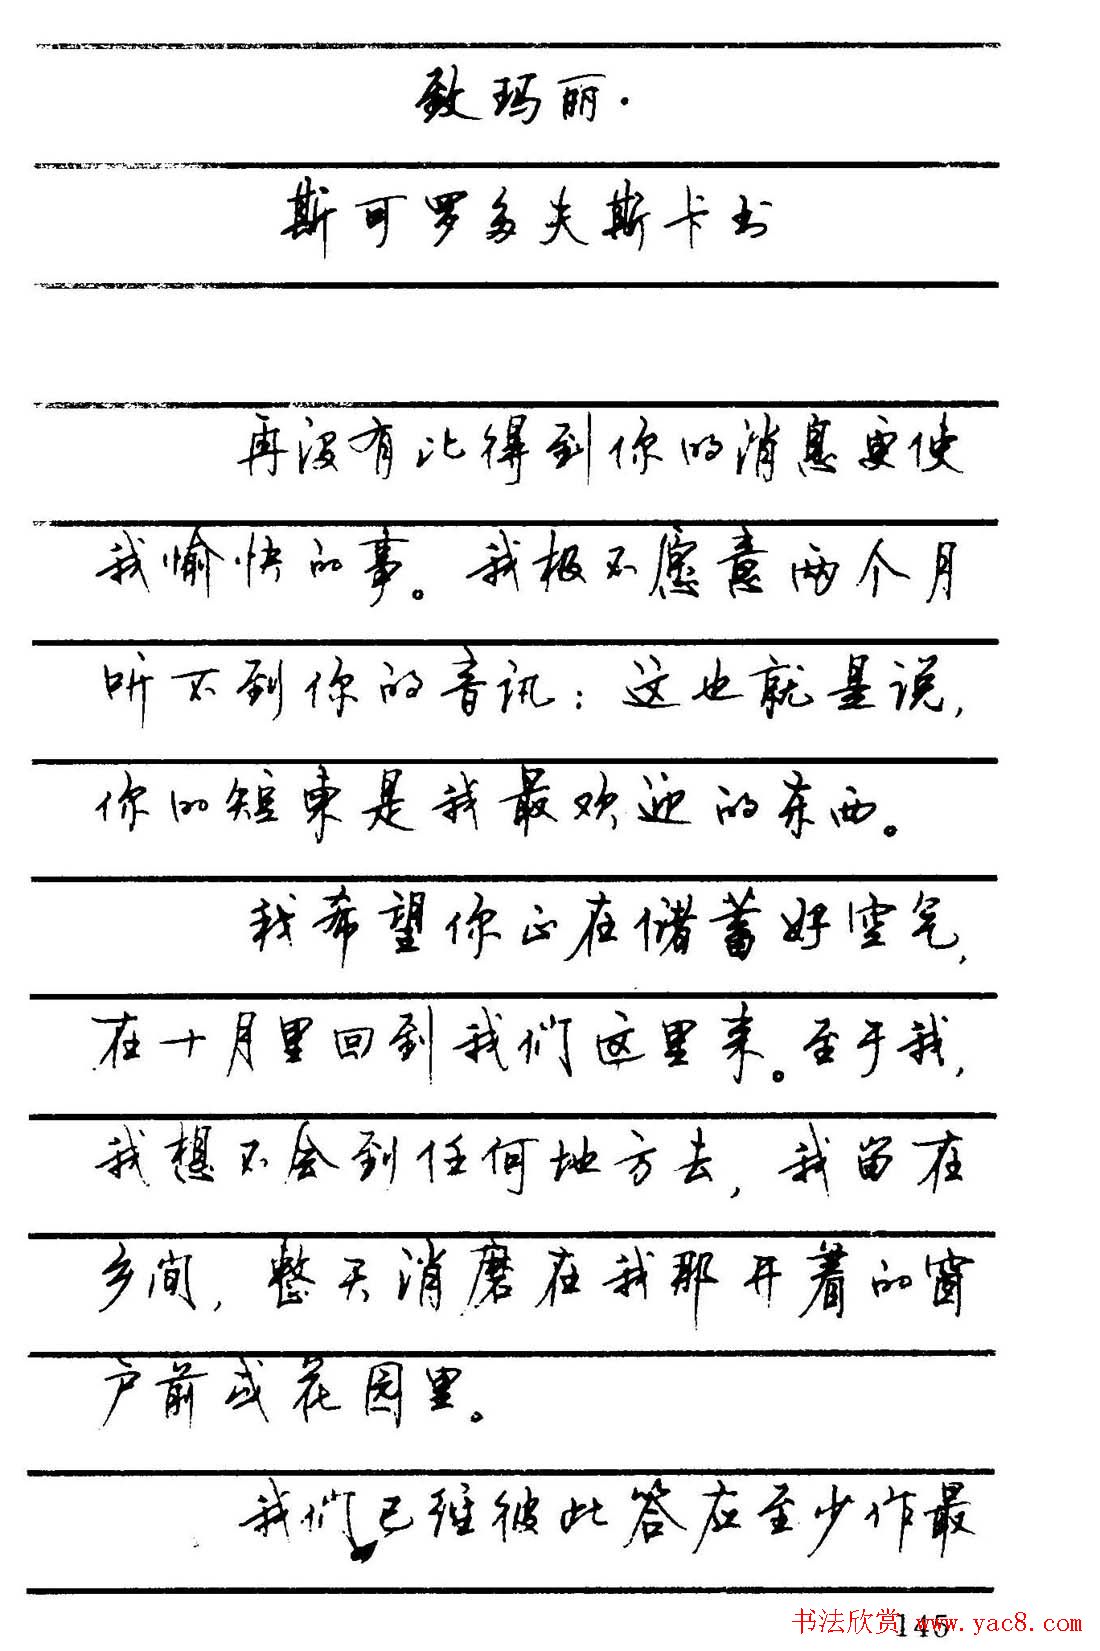 致玛丽·
斯可罗多夫斯卡书
再没有比得到你的消息更使
我愉快的事。我极不愿意两个月
听不到你的音讯：这也就是说，
你的短柬是我最欢迎的东西。
我希望你正在储蓄好空气，
在十月里回到我们这里来。至于我，
我想不会到任何地方去，我留在
乡间，整天消磨在我那开着的窗
户前或花园里。
我们已经彼此答应至少作最
145
书法欣赏 www.yac8.com